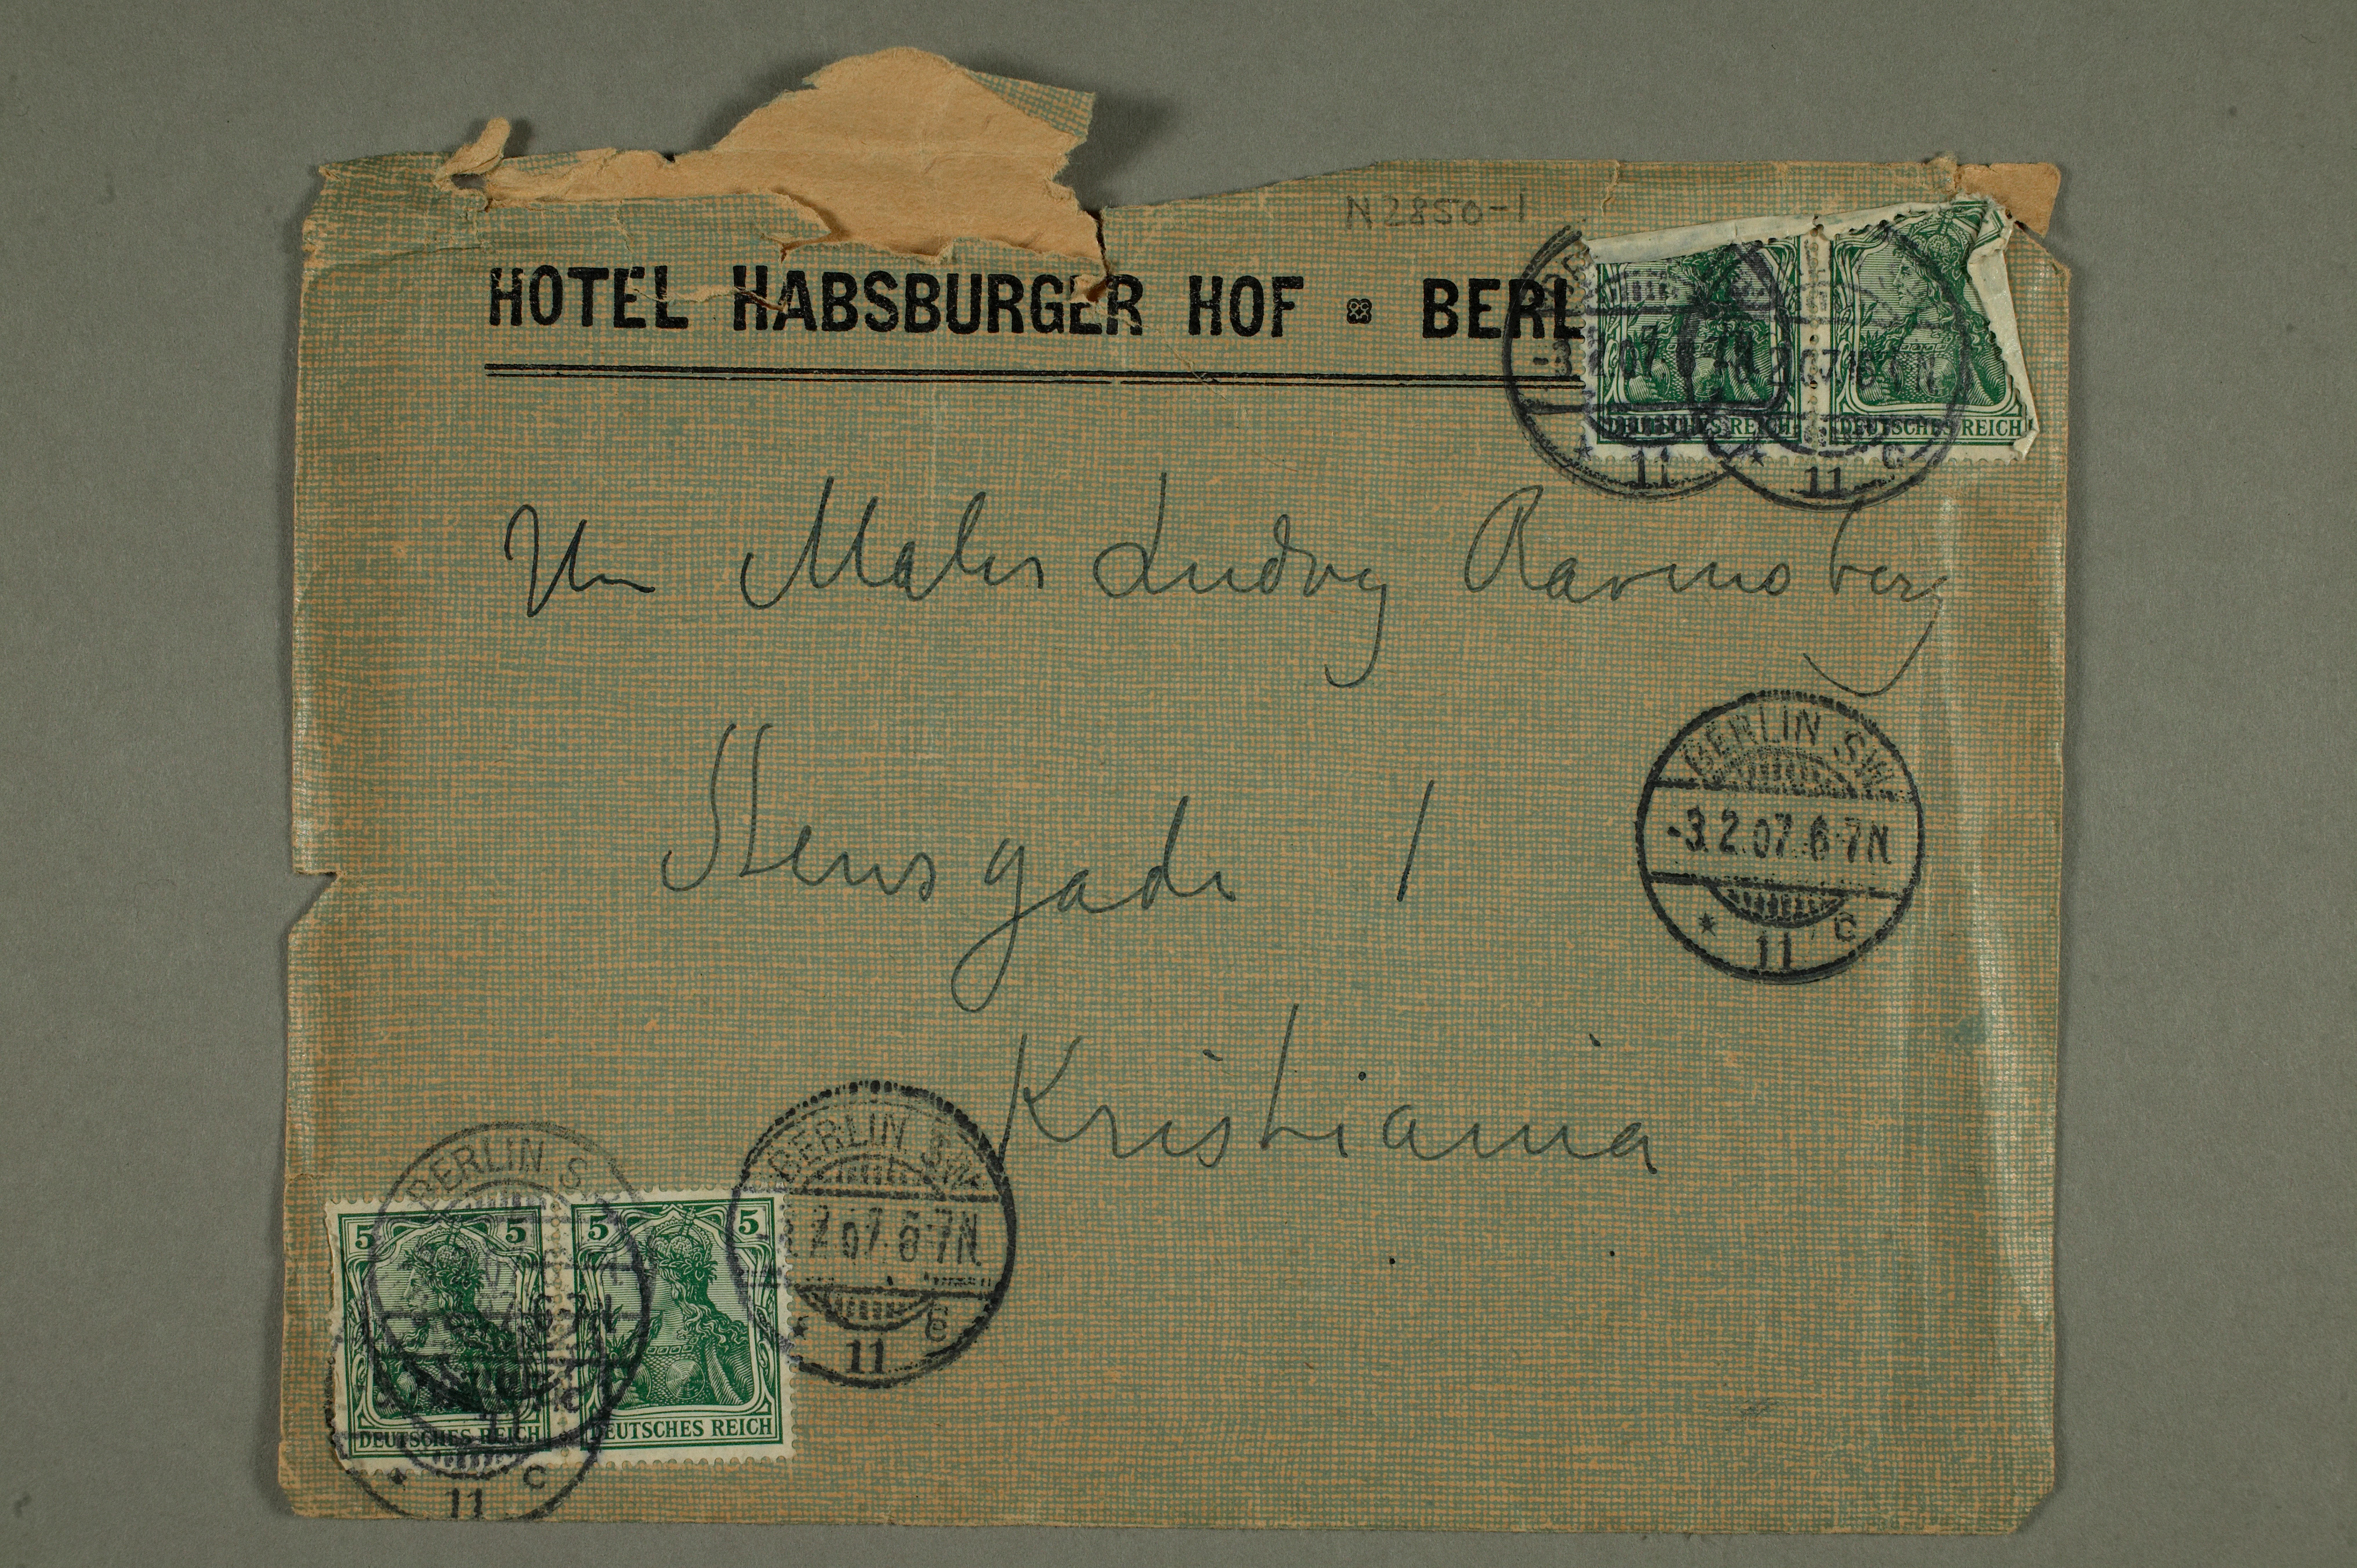 N2850-1
HOTEL HABSBURGER HOF BERL
DEUTSCHES REICH DEUTSCHES REICH
11
11 C
Hrn Maler Ludvig Ravensberg
BERLIN S.W.
-3.2.07.6-7N.
* 11 C
Stensgade 1
Kristiania
BERLIN S.W.
2.07.6-7N.
* 11 C
BERLIN S.
5 5 5 5
DEUTSCHES REICH DEUTSCHES REICH
* 11 C